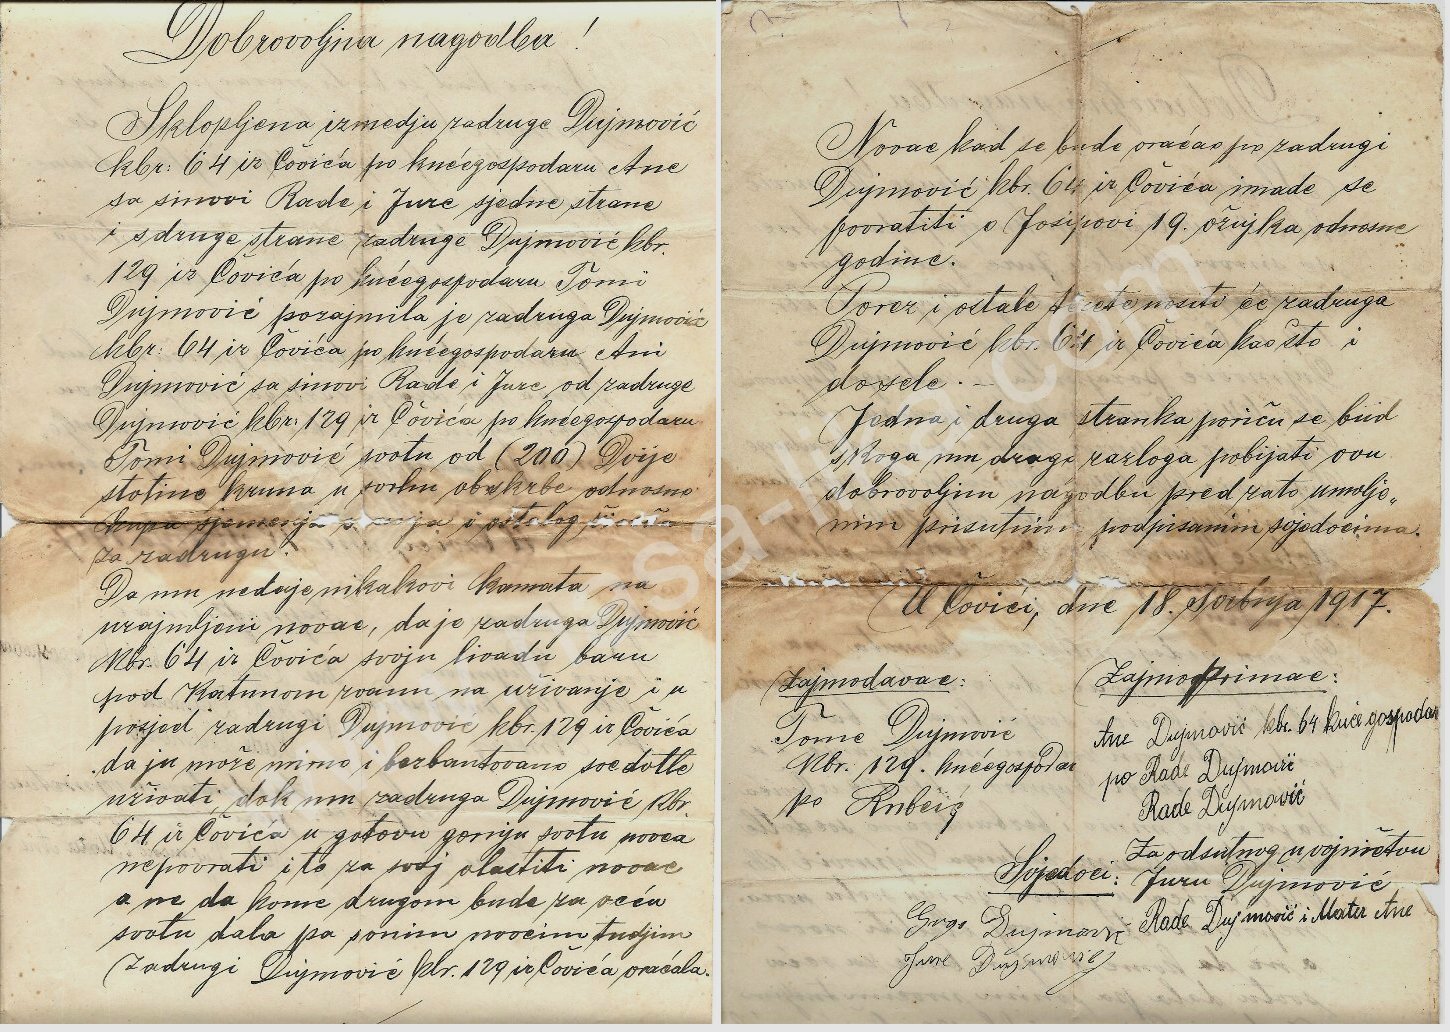 Dobrovoljna nagodba!
Sklopljena izmedju zadruge Dujmović
kbr: 64 iz Čovića po kućegospodaru Ane
sa sinovi Rade i Jure sjedne strane
i sdruge strane zadruge Dujmović kbr.
129 iz Čovića po kućegospodaru Tomi
Dujmović pozajmila je zadruga Dujmović
kbr: 64 iz Čovića po kućegospodaru Ani
Dujmović sa sinovi Rade i Jure, od zadruge
Dujmović kbr: 129 iz Čovića po kućegospodaru
Tomi Dujmović svotu od (200) Dvije
stotine kruna u svrhu obskrbe odnosno
kupa sjemenja i ostalog
za zadrugu.
Da mu nedaje nikakovi kamata na
uzajmljeni novac, daje zadruga Dujmović
kbr. 64 iz Čovića svoju livadu baru
pod Katunom zvanu na uživanje i u
posjed zadrugi Dujmović kbr. 129 iz Čovića
da ju može mirno i bezbantovano sve dotle
uživati, dok mu zadruga Dujmović kbr.
64 iz Čovića u gotovu gornju svotu novca
nepovrati i to za svoj vlastiti novac
a ne da kome drugom bude za veću
svotu dala pa sonim novcim tudjim
zadrugi Dujmović kbr. 129 iz Čovića vraćala.
Novac kad se bude vraćao po zadrugi
Dujmović kbr. 64 iz Čovića imade se
povratiti o Josipovi 19. ožujka odnosne
godine.
Porez i ostale terete nositi će zadruga
Dujmović kbr. 64 iz Čovića kao što i
dosele. —
Jedna i druga stranka poriču se bud
skoga mu drago razloga pobijati ovu
dobrovoljnu nagodbu pred zato umolje„
nim prisutnim podpisanim svjedocima.
U Čovići, dne 18. Svibnja 1917.
Zajmodavac:
Tome Dujmović
kbr. 129. kućegospodar
po
Zajmoprimac:
Ane Dujmović kbr. 64 kuće gospodar
po Rade Dujmović
Rade Dujmović
Za odsutnog u vojničtvu
Juru Dujmović
Rade Dujmović i Mater Ane
Svjedoci:
Dujmović
Jure Dujmović